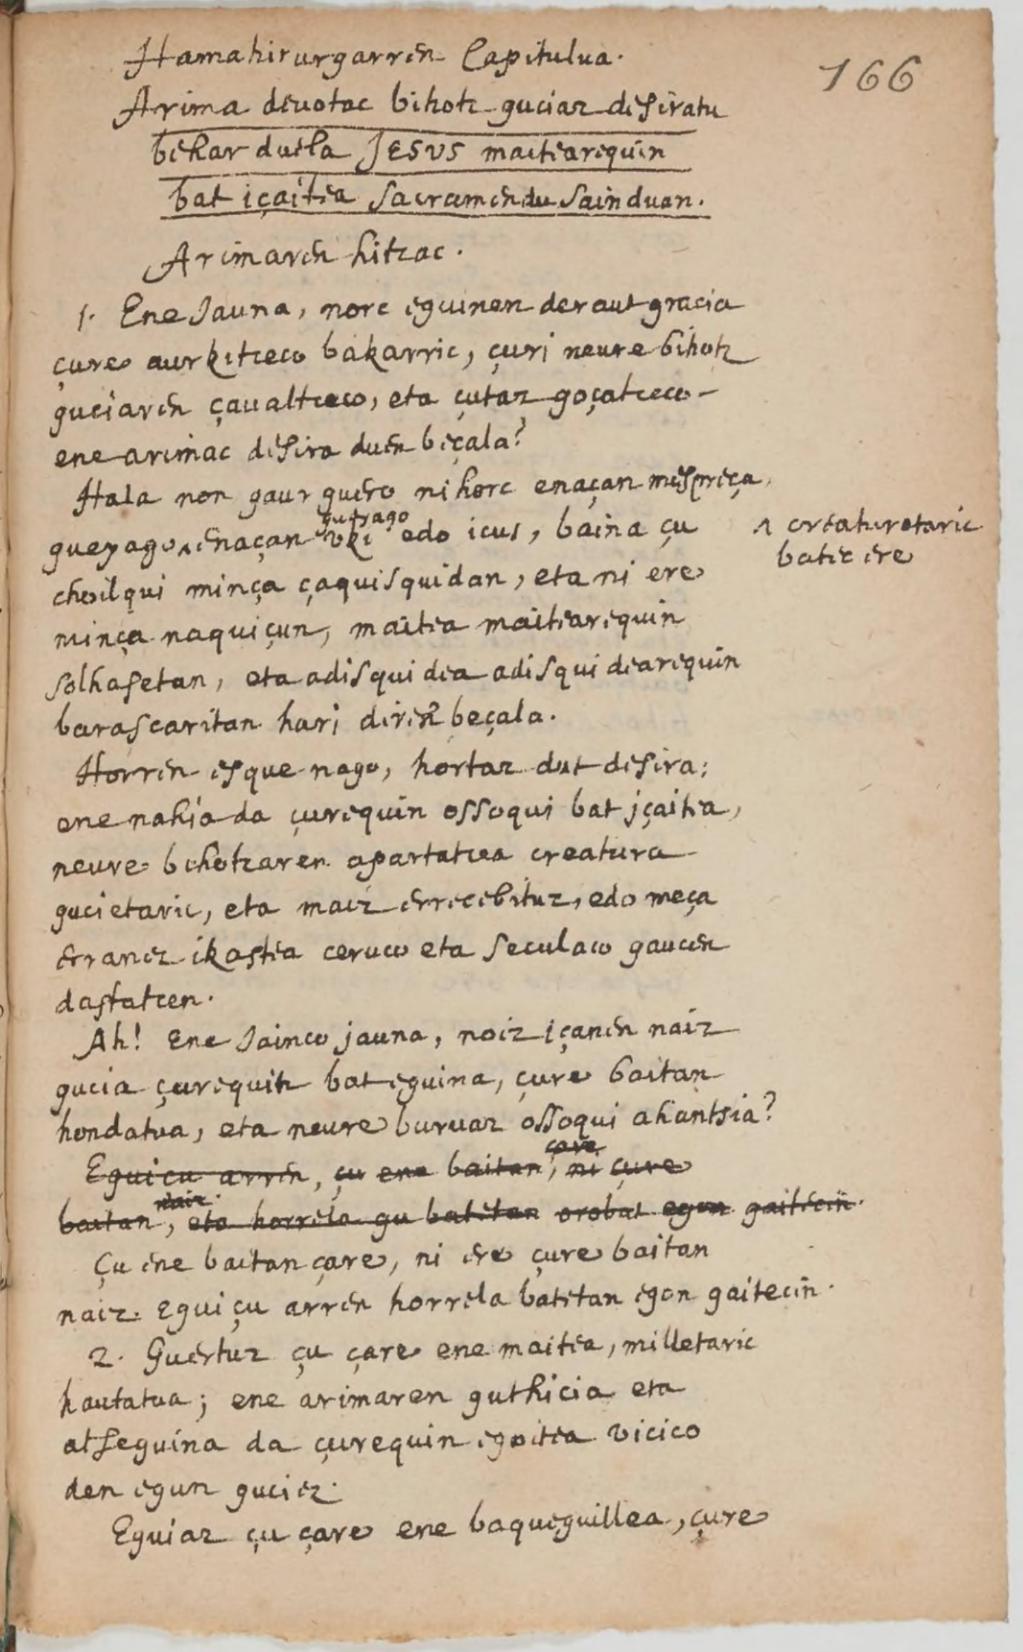 166
Hamahirurgarren Capitulua.
Arima devotac bihotz guciaz desiratu
behar duela JESUS maitearequin
bat içaitea Sacramendu Sainduan.
Arimaren hitzac.
1. Ene Jauna, norc eguinen deraut gracia
çure aurkitceco bakarric, çuri neure bihotz
guciaren çavaltceco, eta çutaz goçatceco
ene arimac desira duen beçala?
Hala non gaur guero nihorc enaçan mespreça,
gueyago ˄ enaçan uki edo icus, baina çu
gueyago
˄ creaturetaric
batec ere
choilqui minça çaquisquidan, eta ni ere
minça naquiçun, maitea maitearequin
solhasetan, eta adisquidea adisquidearequin
barascaritan hari diren beçala.
Horren esque nago, hortaz dut desira;
ene nahia da çurequin ossoqui bat jçaitea,
neure bihotzaren apartatcea creatura
gucietaric, eta maiz errecebituz, edo meça
erranez ikastea ceruco eta seculaco gaucen
dastatcen.
Ah! Ene Jainco jauna, noiz içanen naiz
gucia çurequin bat eguina, çure baitan
hondatua, eta neure buruaz ossoqui ahantsia?
Eguiçu arren, çu ene baitan çare, ni çure
baitan naiz, eta horrela gu batetan orobat egon gaitecin.
Çu ene baitan çare, ni ere çure baitan
naiz. Eguiçu arren horrela batetan egon gaitecin.
2. Guertuz çu çare ene maitea, milletaric
hautatua; ene arimaren guthicia eta
atseguina da çurequin egoitea vicico
den egun guciez.
Eguiaz çu çare ene baqueguillea, çure